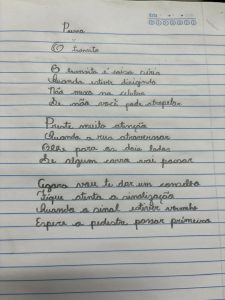 Poema
O trânsito
O trânsito é coisa séria
Quando estiver dirigindo
Não mexa no celular
Se não você pode atropelar
Preste muita atenção
Quando a rua atravessar
Olhe para os dois lados
Se algum carro vai passar
Agora vou te dar um conselho
Fique atento a sinalização
Quando o sinal estiver vermelho
Espere o pedestre passar primeiro